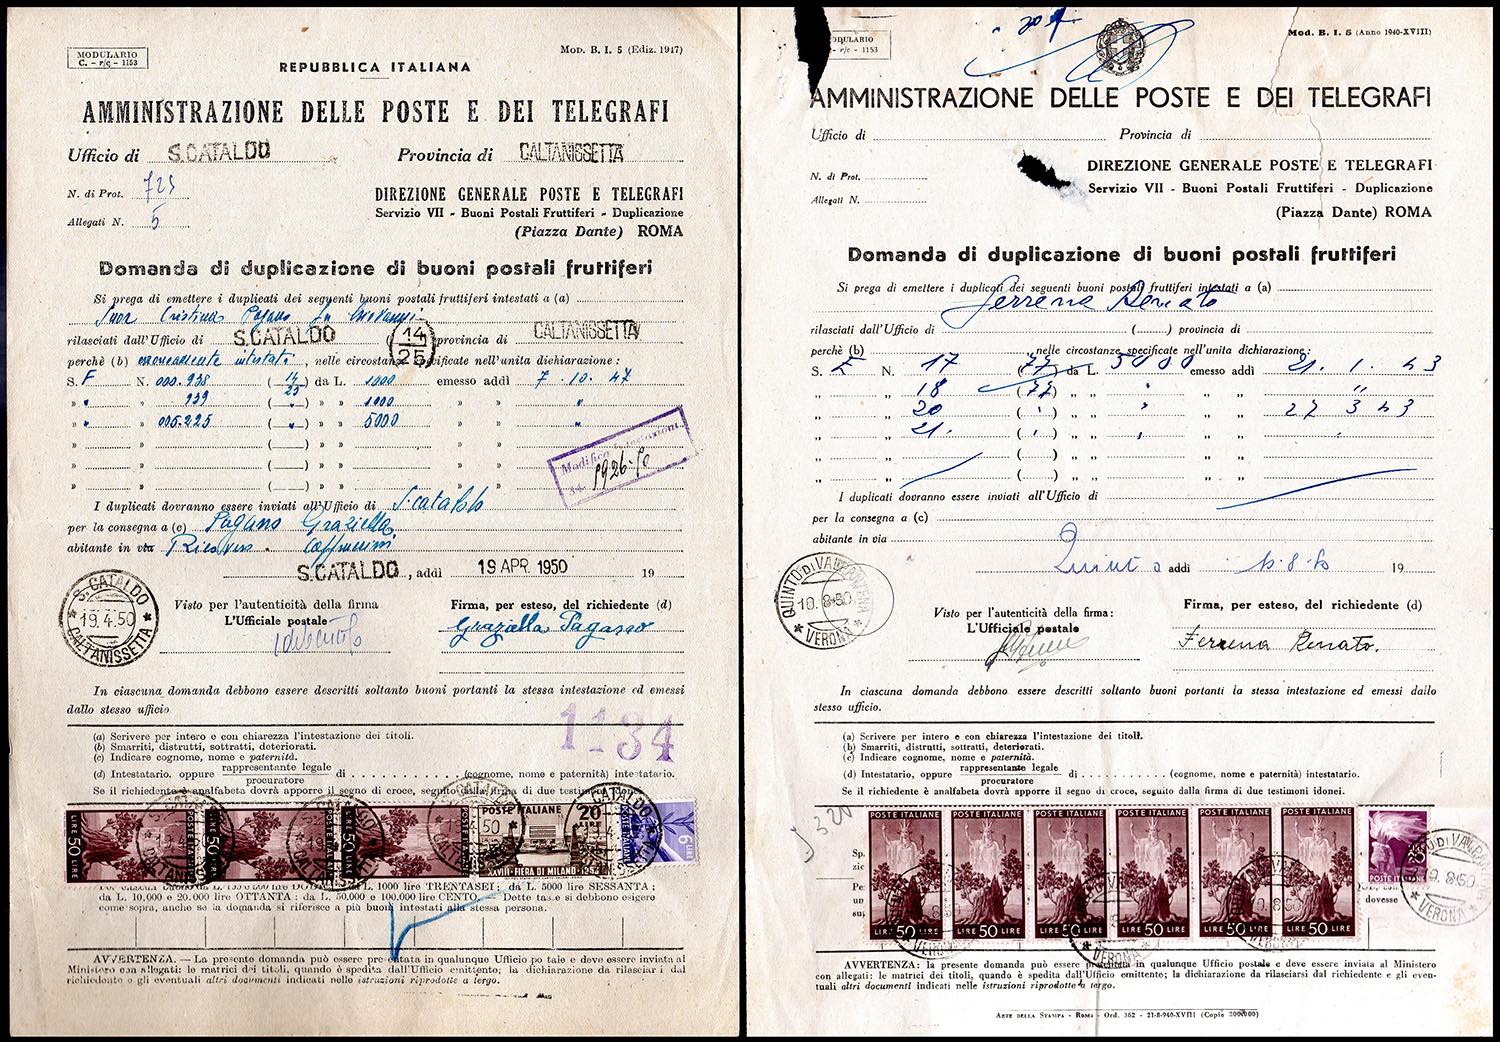 MODULARIO
C. - r/c - 1153
MOD. B. I. 5 (Ediz. 1947)
REPUBBLICA ITALIANA
AMMINISTRAZIONE DELLE POSTE E DEI TELEGRAFI
Ufficio di S. CATALDO Provincia di CALTANISSETTA
N. di Prot. 723
Allegati N. 5
DIREZIONE GENERALE POSTE E TELEGRAFI
Servizio VII - Buoni Postali Fruttiferi - Duplicazione
(Piazza Dante) ROMA
Domanda di duplicazione di buoni postali fruttiferi
Si prega di emettere i duplicati dei seguenti buoni postali fruttiferi intestati a (a)
Suor Cristina Pagano fu Giovanni
rilasciati dall'Ufficio di S. CATALDO (14/25) provincia di CALTANISSETTA
perchè (b) erroneamente intestati, nelle circostanze specificate nell'unita dichiarazione :
S. F N. 000.938 (14/25) da L. 1000 emesso addì 7.10.47
» " 939 ( " ) » » 1000 » » "
» " 005.225 ( " ) » » 5000 » » "
» ( ) » » » »
» ( ) » » » »
» ( ) » » » »
Modifica
5926-Pe
I duplicati dovranno essere inviati all'Ufficio di S. cataldo
per la consegna a (c) Pagano Graziella
abitante in via Cappuccini
S. CATALDO, addì 19 APR. 1950 19
S. CATALDO
19.4.50
* CALTANISSETTA *
Visto per l'autenticità della firma
L'Ufficiale postale
Firma, per esteso, del richiedente (d)
Graziella Pagano
In ciascuna domanda debbono essere descritti soltanto buoni portanti la stessa intestazione ed emessi
dallo stesso ufficio
1134
(a) Scrivere per intero e con chiarezza l'intestazione dei titoli.
(b) Smarriti, distrutti, sottratti, deteriorati.
(c) Indicare cognome, nome e paternità.
(d) Intestatario, oppure rappresentante legale / procuratore di . . . . . . . . . . (cognome, nome e paternità) intestatario.
Se il richiedente è analfabeta dovrà apporre il segno di croce, seguito dalla firma di due testimoni
LIRE 50 LIRE POSTE ITALIANE
LIRE 50 LIRE POSTE ITALIANE
LIRE 50 LIRE POSTE ITALIANE
POSTE ITALIANE 20 LIRE
XXVIII - FIERA DI MILANO - 1950
6 LIRE POSTE ITALIANE
L. 1000 lire TRENTASEI ; da L. 5000 lire SESSANTA ;
da L. 10,000 e 20.000 lire OTTANTA : da L. 50.000 e 100.000 lire CENTO. — Dette tasse si debbono esigere
come sopra, anche se la domanda si riferisce a più buoni intestati alla stessa persona.
AVVERTENZA. — La presente domanda può essere presentata in qualunque Ufficio po tale e deve essere inviata al
Ministero con allegati: le matrici dei titoli, quando è spedita dall'Ufficio emittente; la dichiarazione da rilasciar i dal
richiedente e gli eventuali altri documenti indicati nelle istruzioni riprodotte a tergo.
ODULARIO
r/c - 1153
Mod. B. I. 5 (Anno 1940-XVIII)
AMMINISTRAZIONE DELLE POSTE E DEI TELEGRAFI
Ufficio di Provincia di
N. di Prot.
Allegati N.
DIREZIONE GENERALE POSTE E TELEGRAFI
Servizio VII - Buoni Postali Fruttiferi - Duplicazione
(Piazza Dante) ROMA
Domanda di duplicazione di buoni postali fruttiferi
Si prega di emettere i duplicati dei seguenti buoni postali fruttiferi intestati a (a)
Ferrena Renato
rilasciati dall'Ufficio di ( ) provincia di
perchè (b) nelle circostanze specificate nell'unita dichiarazione :
S. F N. 17 (77) da L. 5000 emesso addì 21. 1. 43
„ „ 18 (77) „ „ „ „ "
„ „ 20 ( ) „ „ „ „ 27 3 43
„ „ 21. ( ) „ „ „ „
„ „ ( ) „ „ „ „
„ „ ( ) „ „ „ „
I duplicati dovranno essere inviati all'Ufficio di
per la consegna a (c)
abitante in via
Quinto addì 10.8.50 19
QUINTO DI VALPANTENA
10.8.50
* VERONA *
Visto per l'autenticità della firma :
L'Ufficiale postale
Firma, per esteso, del richiedente (d)
Ferrena Renato.
In ciascuna domanda debbono essere descritti soltanto buoni portanti la stessa intestazione ed emessi dallo
stesso ufficio.
(a) Scrivere per intero e con chiarezza l'intestazione dei titoli.
(b) Smarriti, distrutti, sottratti, deteriorati.
(c) Indicare cognome, nome e paternità.
(d) Intestatario, oppure rappresentante legale / procuratore di . . . . . . . . . . (cognome, nome e paternità) intestatario.
Se il richiedente è analfabeta dovrà apporre il segno di croce, seguito dalla firma di due testimoni idonei.
320
POSTE ITALIANE POSTE ITALIANE POSTE ITALIANE POSTE ITALIANE POSTE ITALIANE POSTE ITALIANE
LIRE 50 LIRE LIRE 50 LIRE LIRE 50 LIRE LIRE 50 LIRE LIRE 50 LIRE LIRE 50 LIRE
POSTE ITALIANE
dovesse
AVVERTENZA: la presente domanda può essere presentata in qualunque Ufficio postale e deve essere inviata al Ministero
con allegati: le matrici dei titoli, quando è spedita dall'Ufficio emittente; la dichiarazione da rilasciarsi dal richiedente e gli even-
tuali altri documenti indicati nelle istruzioni riprodotte a tergo.
ARTE DELLA STAMPA - ROMA - Ord. 362 - 21-8-940-XVIII (Copie 200.000)